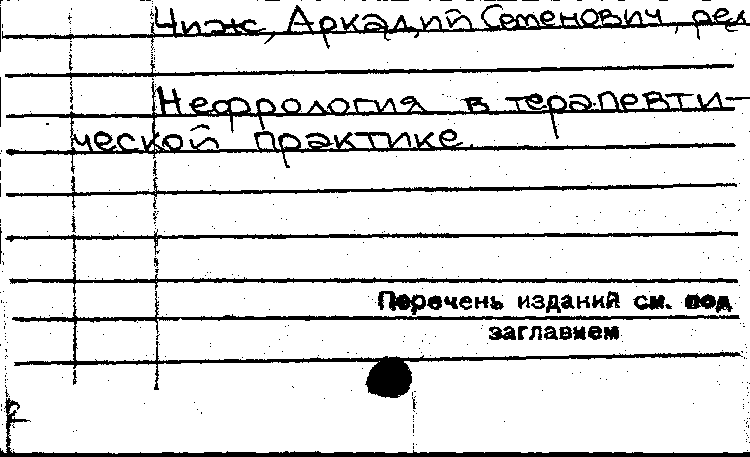 Чиж, Аркадий Семенович, ред
Нефрология в терапевти-
ческой практике.
Перечень изданий см. под
заглавием